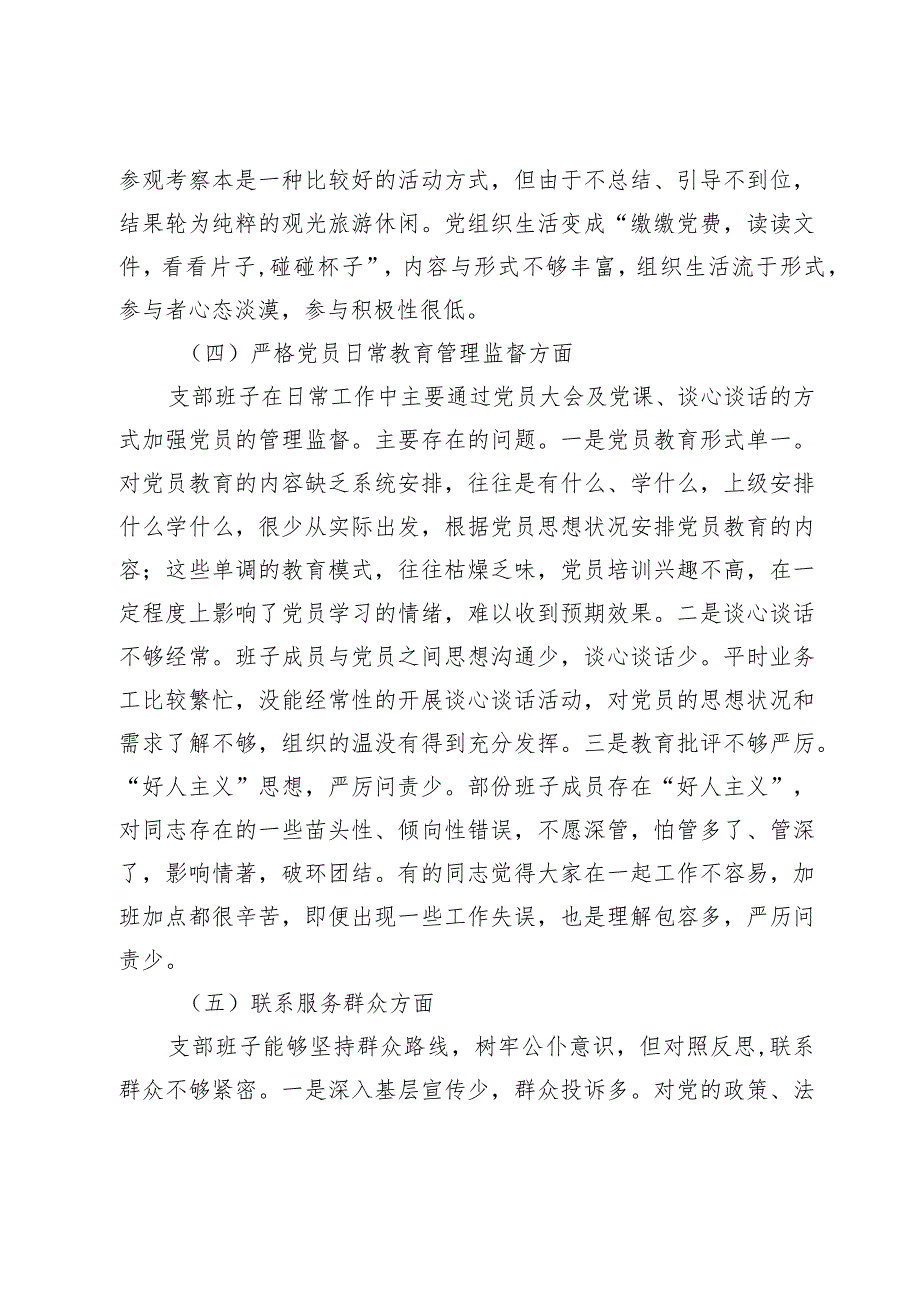 参观考察本是一种比较好的活动方式，但由于不总结、引导不到位，
结果轮为纯粹的观光旅游休闲。党组织生活变成“缴缴党费，读读文
件，看看片子,碰碰杯子”，内容与形式不够丰富，组织生活流于形式，
参与者心态淡漠，参与积极性很低。
（四）严格党员日常教育管理监督方面
支部班子在日常工作中主要通过党员大会及党课、谈心谈话的方
式加强党员的管理监督。主要存在的问题。一是党员教育形式单一。
对党员教育的内容缺乏系统安排，往往是有什么、学什么，上级安排
什么学什么，很少从实际出发，根据党员思想状况安排党员教育的内
容；这些单调的教育模式，往往枯燥乏味，党员培训兴趣不高，在一
定程度上影响了党员学习的情绪，难以收到预期效果。二是谈心谈话
不够经常。班子成员与党员之间思想沟通少，谈心谈话少。平时业务
工比较繁忙，没能经常性的开展谈心谈话活动，对党员的思想状况和
需求了解不够，组织的温没有得到充分发挥。三是教育批评不够严厉。
“好人主义”思想，严厉问责少。部份班子成员存在“好人主义”，
对同志存在的一些苗头性、倾向性错误，不愿深管，怕管多了、管深
了，影响情著，破环团结。有的同志觉得大家在一起工作不容易，加
班加点都很辛苦，即便出现一些工作失误，也是理解包容多，严历问
责少。
（五）联系服务群众方面
支部班子能够坚持群众路线，树牢公仆意识，但对照反思,联系
群众不够紧密。一是深入基层宣传少，群众投诉多。对党的政策、法